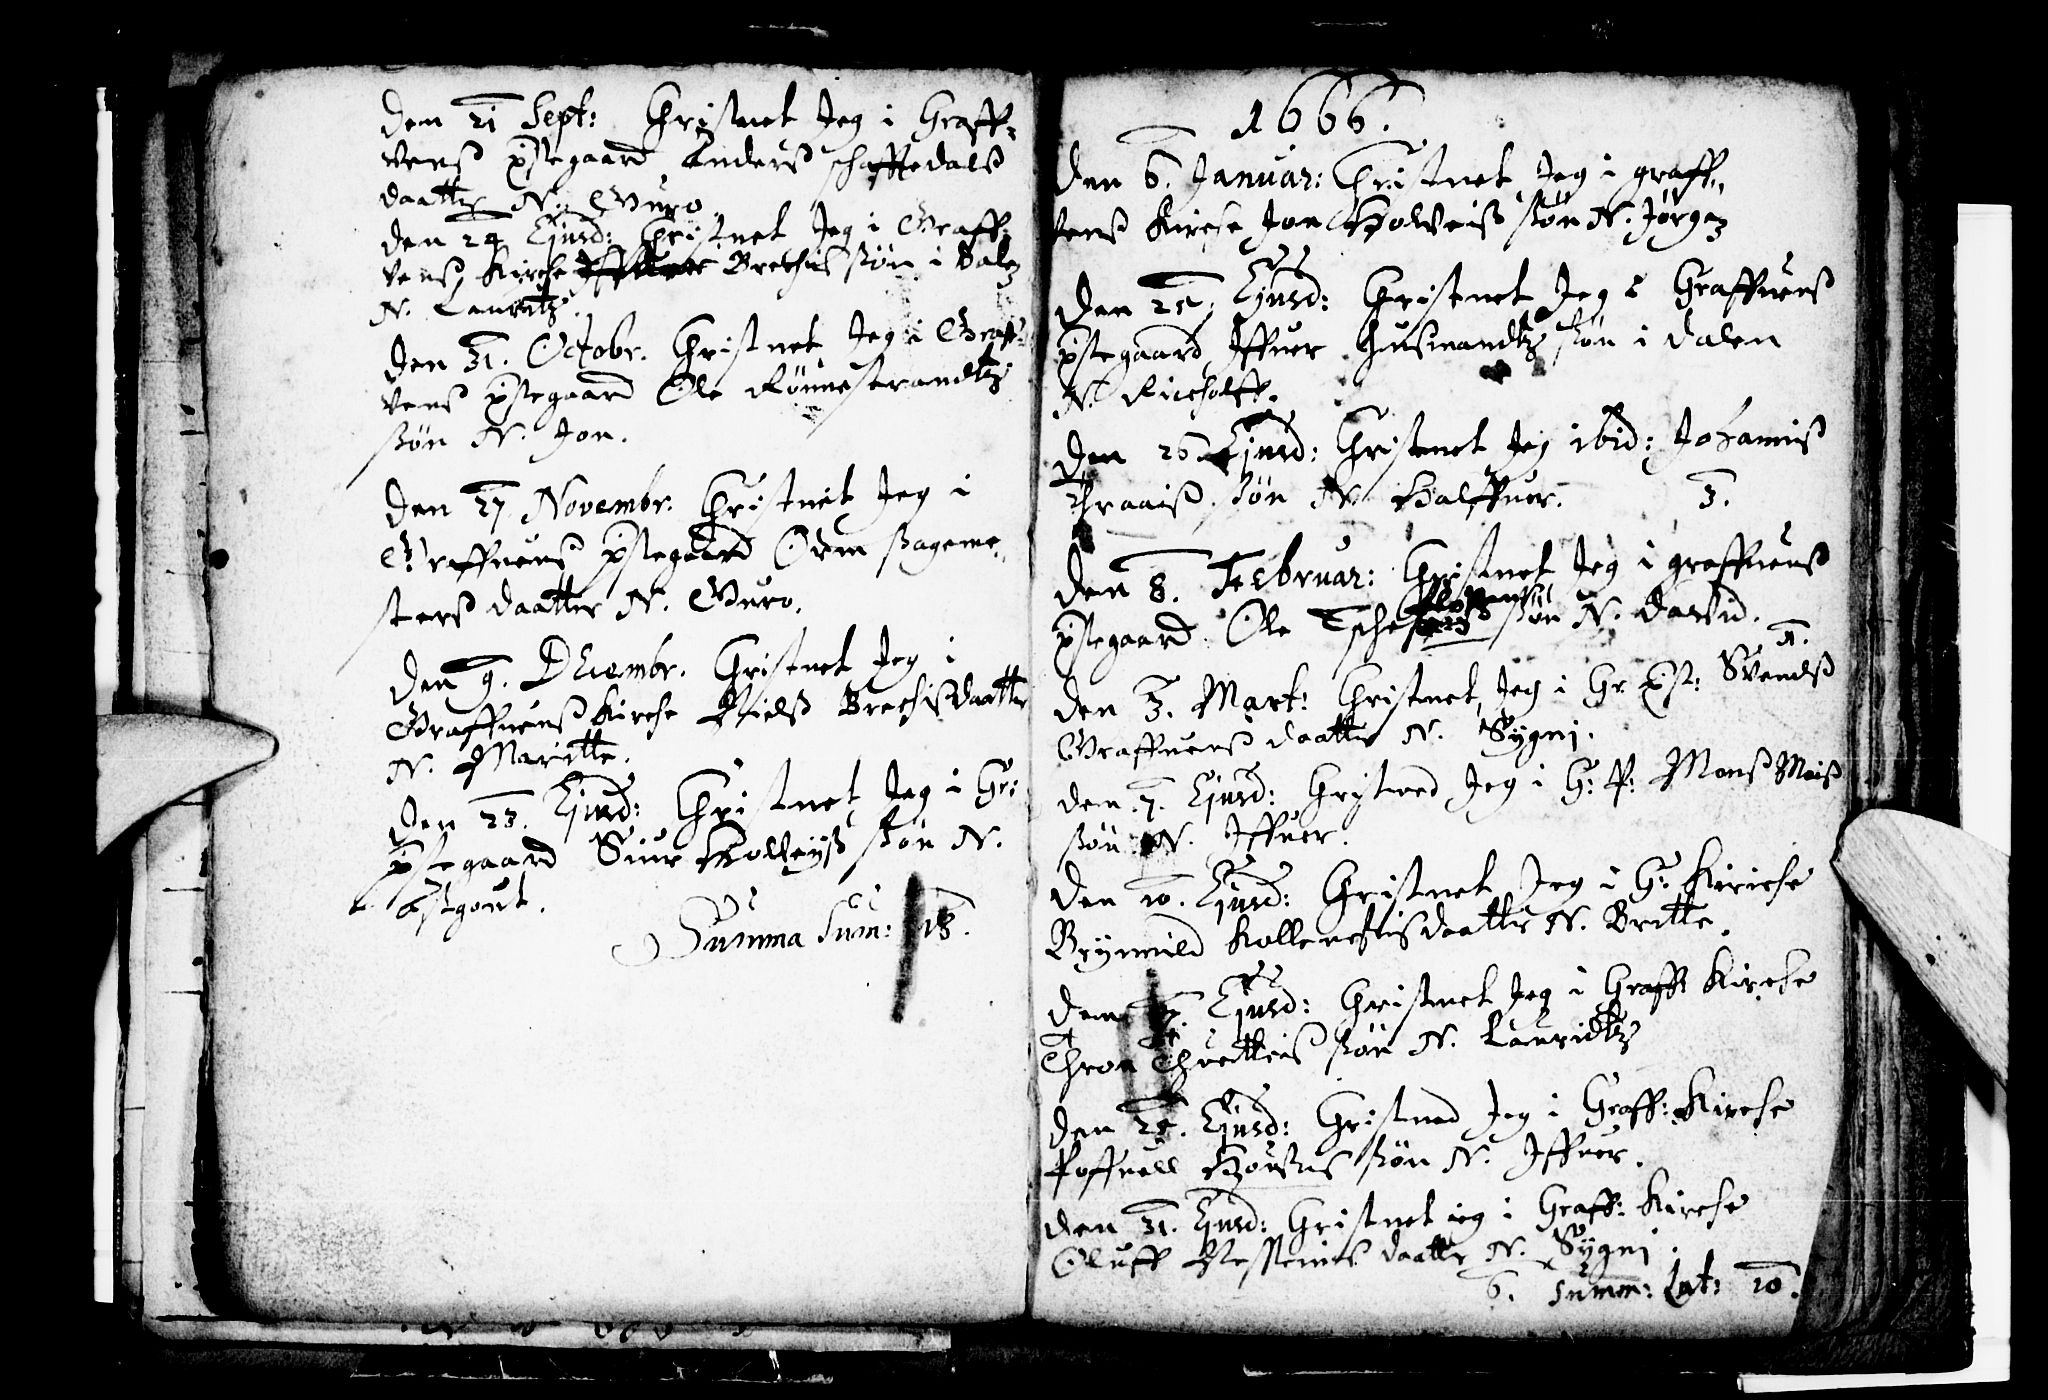 Den 21 Sept: Christnet Jeg i Graff-
vens pstegaard Anders schaffedals
daatter N. Guro.
Den 24 Ejusd: Christnet Jeg i Graff-
vens Kirche Brechis søn i
N. Lauritz.
Den 31. Octobr. Christnet Jeg i Graf-
vens pstegaard Ole Rønnestrandtz
søn N. Jon.
Den 27 Novembr. Christnet Jeg i
Graffuens pstegaard Orm sageme-
sters daatter N. Guro.
Den 9. Decembr. Christnet Jeg i
Graffuens Kirche Nielss Brechis daatter
N. Maritte.
Den 23. Ejusd: Christnet Jeg i Gr:
pstegaard Siur søn N.
Summa Sum: 18.
1666.
Den 6. Januar: Christnet Jeg i graff-
vens Kirche Jon Holveiss søn N. Jørgen
Den 25. Ejusd: Christnet Jeg i Graffuens
pstegaard Iffuer Husmandtz søn i Dalen
N.
Den 26. Ejusd: Christnet Jeg ibid: Johannis
søn N. Halffuer. 3.
Den 8. Februar: Christnet Jeg i graffuens
pstegaard Ole søn N. David.
1.
Den 3. Mart: Christnet Jeg i Gr. pst: Svends
Graffuens daatter N. Sygni.
Den 7. Ejusd: Christned Jeg i G: P: Mons Meiss
søn N. Iffuer.
Den 10. Ejusd: Christnet Jeg i G: Kiriche
Brynnild daatter N. Britte.
Den Ejusd: Christnet Jeg i Graff: Kirche
Thron søn N. Lauridtz
Den 25. Ejusd: Christned Jeg i Graff: Kirche
Poffuell søn N. Iffuer.
Den 31. Ejusd: Christnet ieg i Graff: Kirche
Oluff daatter N. Sygni.
6. Summ: Lat: 10.